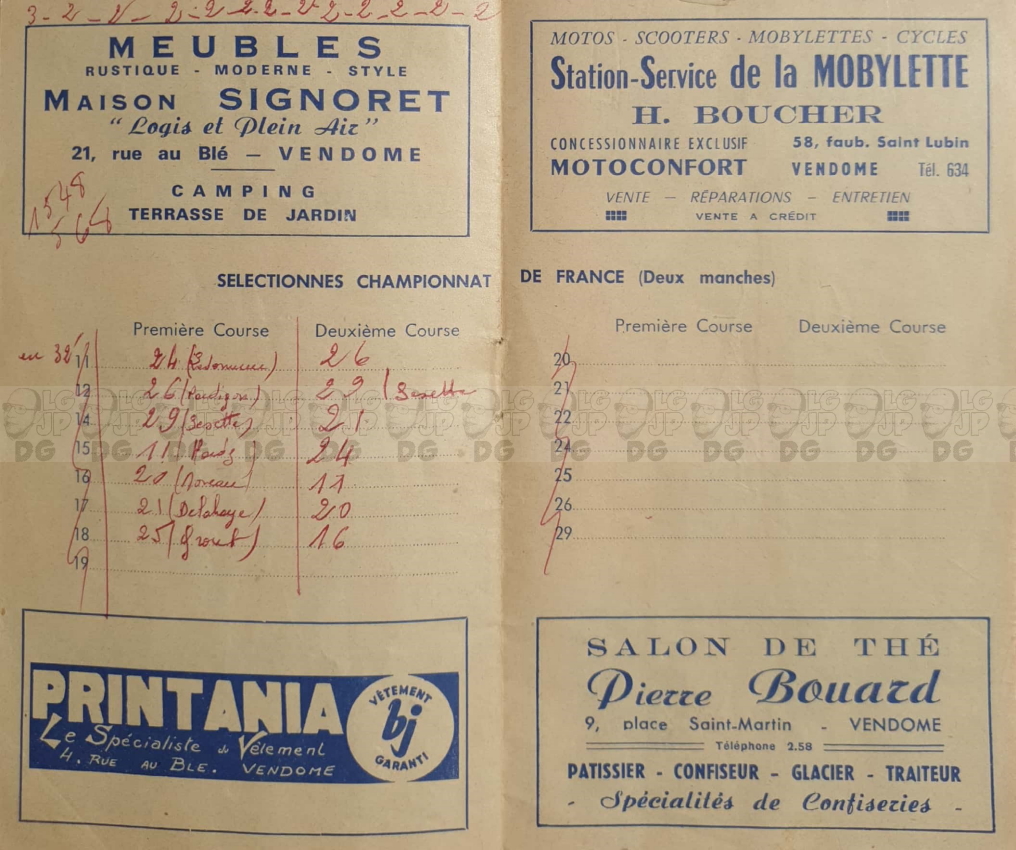 3-2-2-2-2-2.2-2-2-2-2-2-2
MEUBLES
RUSTIQUE - MODERNE - STYLE
MAISON SIGNORET
"Logis et Plein Air"
21, rue au Blé — VENDOME
CAMPING
TERRASSE DE JARDIN
1548
564
MOTOS - SCOOTERS - MOBYLETTES - CYCLES
Station-Service de la MOBYLETTE
H. BOUCHER
CONCESSIONNAIRE EXCLUSIF 58, faub. Saint Lubin
MOTOCONFORT VENDOME Tél. 634
VENTE — RÉPARATIONS — ENTRETIEN
VENTE A CRÉDIT
SELECTIONNES CHAMPIONNAT DE FRANCE (Deux manches)
Première Course Deuxième Course
11 24 26
12 26 29 (Besette
14 29 (Besette) 21
15 11 24
16 20 (Moreau) 11
17 21 (Delahaye) 20
18 25 16
19
Première Course Deuxième Course
20
21
22
24
25
26
29
LG JP DG
PRINTANIA
Le Spécialiste du Vêtement
4, RUE AU BLE. VENDOME
VÊTEMENT
bj
GARANTI
SALON DE THÉ
Pierre Bouard
9, place Saint-Martin - VENDOME
Téléphone 2.58
PATISSIER - CONFISEUR - GLACIER - TRAITEUR
- Spécialités de Confiseries -